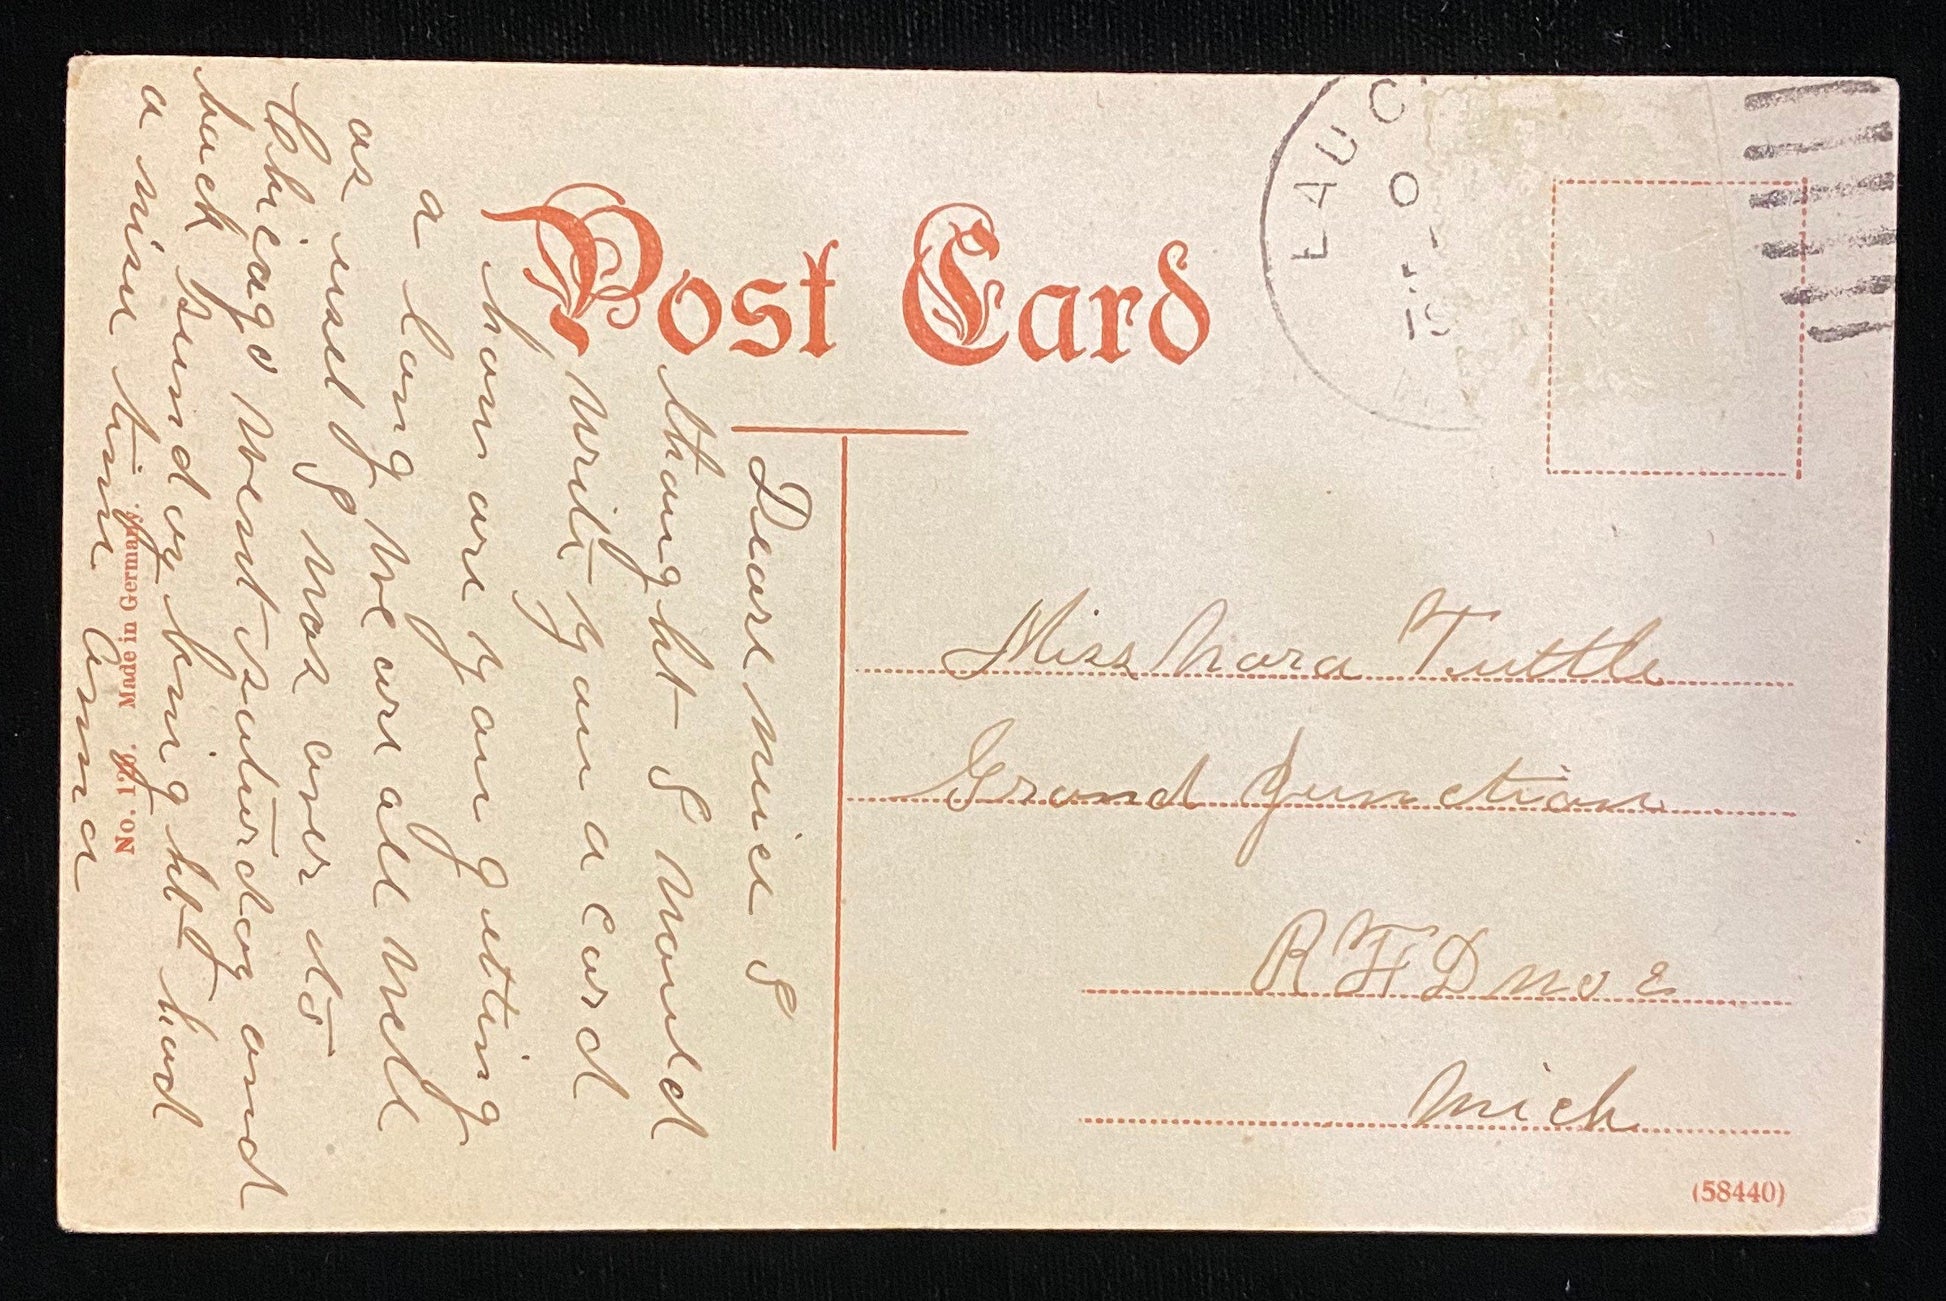 Post Card
EAU C
O
19
Dear niece I
thought I would
write you a card
how are you geting
a long we are all well
as usel I was over to
Chicago went saturday and
back sunday knight had
a nise time
Anna
Miss Nora Tuttle
Grand Junction
R F D no 2
Mich
No. 120. Made in Germany.
(58440)